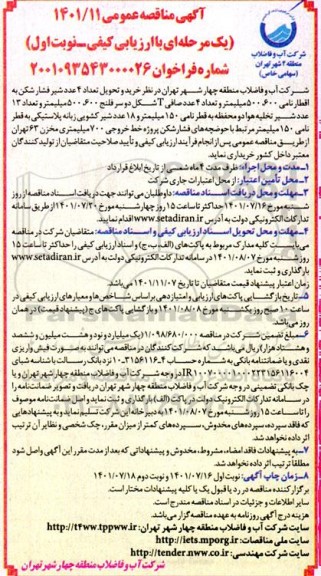 آگهی مناقصه عمومی ۱۴۰۱/۱۱
(یک مرحله‌ای با ارزیابی کیفی - نوبت اول)
شماره فراخوان ۲۰۰۱۰۹۳۵۴۳۰۰۰۰۲۶
شرکت آب و فاضلاب
منطقه ۴ شهر تهران
(سهامی خاص)
شرکت آب و فاضلاب منطقه چهار شهر تهران در نظر دارد خرید و تحویل تعداد ۴ عدد شیر فشار شکن به
اقطار نامی ۵۰۰،۶۰۰ میلیمتر و تعداد ۴ عدد صافی T شکل دو سر فلنج ۵۰۰،۶۰۰ میلیمتر و تعداد ۱۳
عدد شیر تخلیه هوا دو محفظه به قطر نامی ۱۵۰ میلیمتر و ۱۸ عدد شیر کشویی زبانه لاستیکی به قطر
نامی ۱۵۰ میلیمتر مرتبط با حوضچه‌های فشار شکن پروژه خط خروجی ۷۰۰ میلیمتری مخزن ۶۳ تهران
از طریق مناقصه عمومی پس از انجام فرآیند ارزیابی کیفی و تأیید صلاحیت متقاضیان از تولید کنندگان
معتبر داخل کشور خریداری نماید.
۱- مدت و محل اجرا: ظرف مدت ۴ ماه شمسی از تاریخ ابلاغ قرارداد
۲- محل تأمین اعتبار: از محل اعتبارات جاری شرکت
۳- مهلت و محل دریافت اسناد مناقصه: داوطلبان می‌توانند جهت دریافت اسناد مناقصه از روز
شنبه مورخ ۱۴۰۱/۰۷/۱۶ حداکثر تا ساعت ۱۵ روز چهارشنبه مورخ ۱۴۰۱/۰۷/۲۰ از طریق سامانه
تدارکات الکترونیکی دولت به آدرس www.setadiran.ir اقدام نمایند.
۴- مهلت و محل تحویل اسناد ارزیابی کیفی و اسناد مناقصه: متقاضیان شرکت در مناقصه
می‌بایست کلیه مدارک مربوط به پاکت‌های (الف، ب، ج) و اسناد ارزیابی کیفی را حداکثر تا ساعت ۱۵
روز شنبه مورخ ۱۴۰۱/۰۸/۰۷ در سامانه تدارکات الکترونیکی دولت به آدرس www.setadiran.ir
بارگذاری و ثبت نماید.
زمان اعتبار پیشنهاد قیمت متقاضیان تا تاریخ ۱۴۰۱/۱۱/۰۷ می‌باشد
۵- تاریخ بازگشایی پاکت‌های ارزیابی و امتیازدهی بر اساس شاخص‌ها و معیارهای ارزیابی کیفی در
ساعت ۱۰ صبح روز یکشنبه مورخ ۱۴۰۱/۰۸/۰۸ و بازگشایی پاکت‌های ج (پیشنهاد قیمت) در همان
روز می‌باشد.
۶- مبلغ تضمین شرکت در مناقصه ۱/۰۹۸/۶۸۰/۰۰۰ (یک میلیارد و نود و هشت میلیون و ششصد
و هشتاد هزار) ریال می‌باشد که شرکت کنندگان در مناقصه می‌توانند به صورت فیش واریزی
نقدی و یا ضمانتنامه بانکی به شماره حساب
در وجه شرکت آب و فاضلاب منطقه چهار شهر تهران و یا
چک بانکی تضمینی در وجه شرکت آب و فاضلاب منطقه چهار شهر تهران دریافت و تصویر ضمانتنامه را
در سامانه تدارکات الکترونیک دولت در پاکت (الف) بارگذاری و ثبت نماید و اصل ضمانتنامه موصوف
را تا ساعت ۱۵ روز شنبه مورخ ۱۴۰۱/۰۸/۰۷ به دبیرخانه این شرکت تسلیم نماید و به پیشنهادهایی
که فاقد سپرده، سپرده‌های مخدوش، سپرده‌های کمتر از میزان مقرر، چک شخصی و نظایر آن ترتیب
اثر داده نخواهد شد.
۷- به پیشنهادات فاقد امضاء، مشروط، مخدوش و پیشنهاداتی که بعد از مدت مقرر این آگهی واصل شود
مطلقاً ترتیب اثر داده نخواهد شد.
۸- زمان چاپ آگهی: نوبت اول ۱۴۰۱/۰۷/۱۶ و نوبت دوم ۱۴۰۱/۰۷/۱۸
برگزار کننده مناقصه در رد یا قبول یک یا کلیه پیشنهادات مختار است.
سایر اطلاعات و جزئیات در اسناد مناقصه مندرج است.
هزینه درج آگهی روزنامه به عهده مناقصه گزار می‌باشد.
سایت شرکت آب و فاضلاب منطقه چهار شهر تهران: http://t4ww.tppww.ir
سایت ملی مناقصات: http://iets.mporg.ir
سایت شرکت مهندسی: http://tender.nww.co.ir
شرکت آب و فاضلاب منطقه چهار شهر تهران